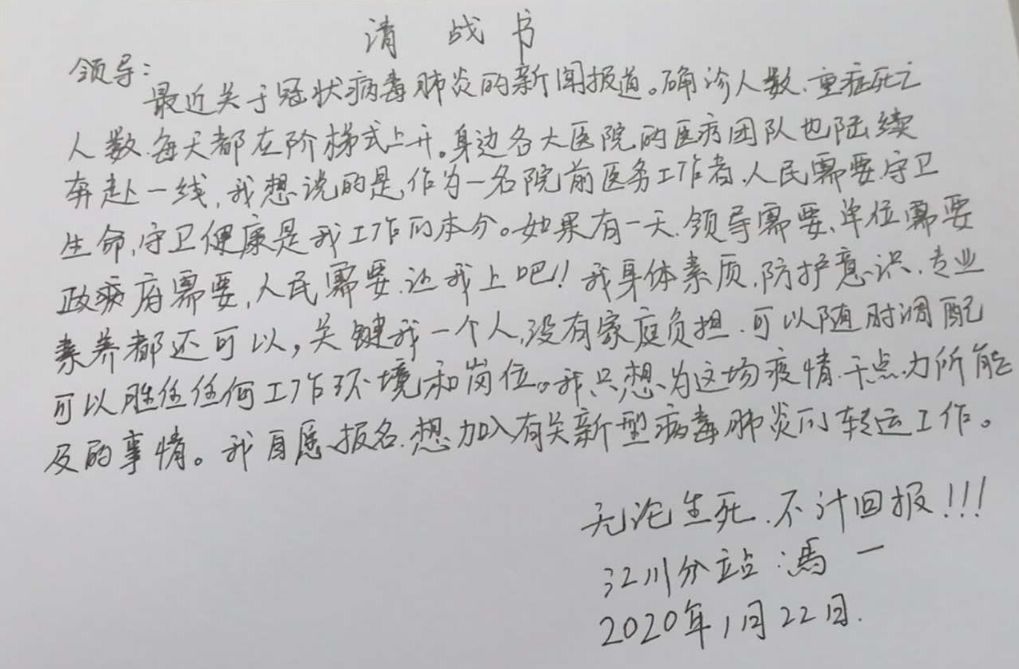 请 战 书
领导:
最近关于冠状病毒肺炎的新闻报道。确诊人数、重症死亡
人数每天都在阶梯式上升。身边各大医院的医疗团队也陆续
奔赴一线,我想说的是,作为一名院前医务工作者、人民需要,守卫
生命,守卫健康是我工作的本分。如果有一天、领导需要、单位需要
政府需要,人民需要、让我上吧!!我身体素质、防护意识、专业
素养都还可以,关键我一个人,没有家庭负担、可以随时调配
可以胜任任何工作环境和岗位。我只想为这场疫情干点力所能
及的事情。我自愿报名、想加入有关新型病毒肺炎的转运工作。
无论生死、不计回报!!!
江川分站:冯一
2020年1月22日.